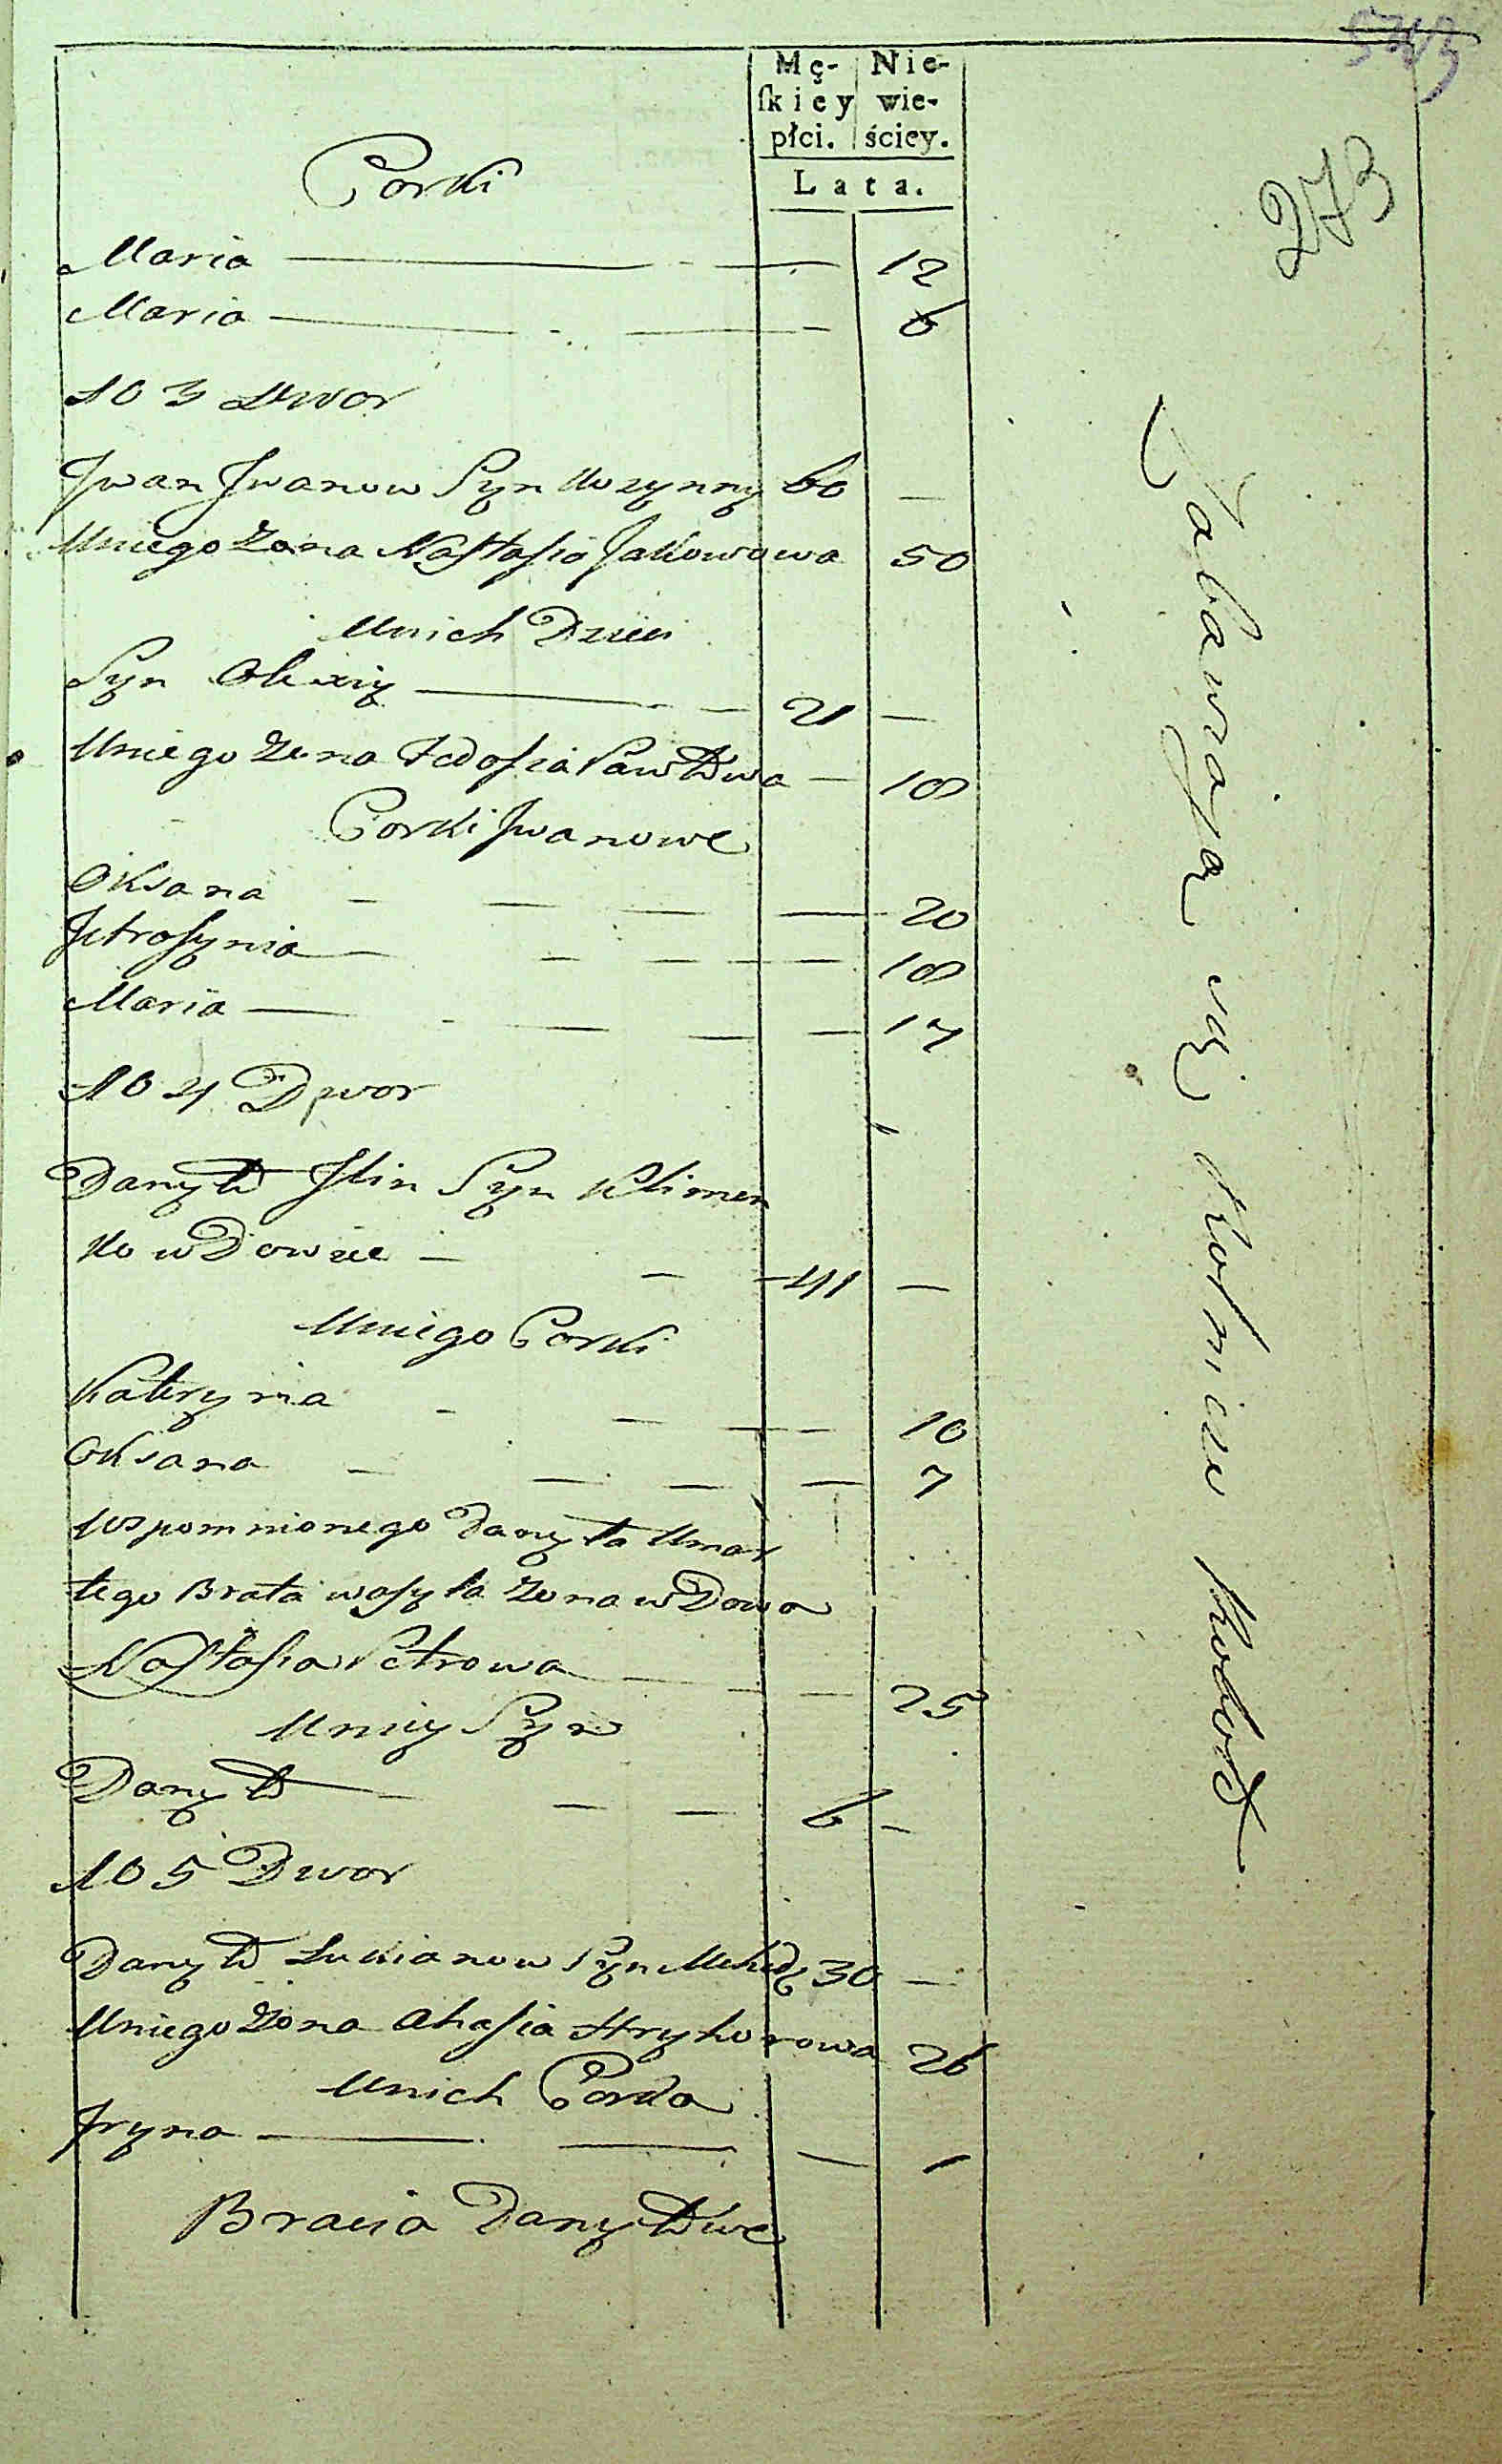 273
Mę- Nie-
ſkiey wie-
płci. ściey.
Lata.
Corki
Maria — 12
Maria — 6
No 3 Dwor
Jwan Jwanow Syn Kozynny 60 —
Uniego Zona Naſtaſia Jakowowa 50
Unich Dzieci
Syn Olexiy — 21 —
Uniego Zona Fedoſia Pawłowa — 18
Corki Jwanowe
Oksana — 20
Jefroſynia — 18
Maria — 17
No 4 Dwor
Danyło Jlin Syn Klimen
ko wDowiec — 41 —
Uniego Corki
Kateryna — 10
Oksana — 7
Wspomnionego Danyła Umar
łego Brata waſyla Zona wDowa
Naſtaſia Petrowa — 25
Uniey Syn
Danyło — 6 —
No 5 Dwor
Danyło Lukianow Syn 30 —
Uniego Zona Ahaſia Hryhorowa 26
Unich Corka
Jryna — 1
Bracia Danyłowe
Zabawiaią się Rolnicze